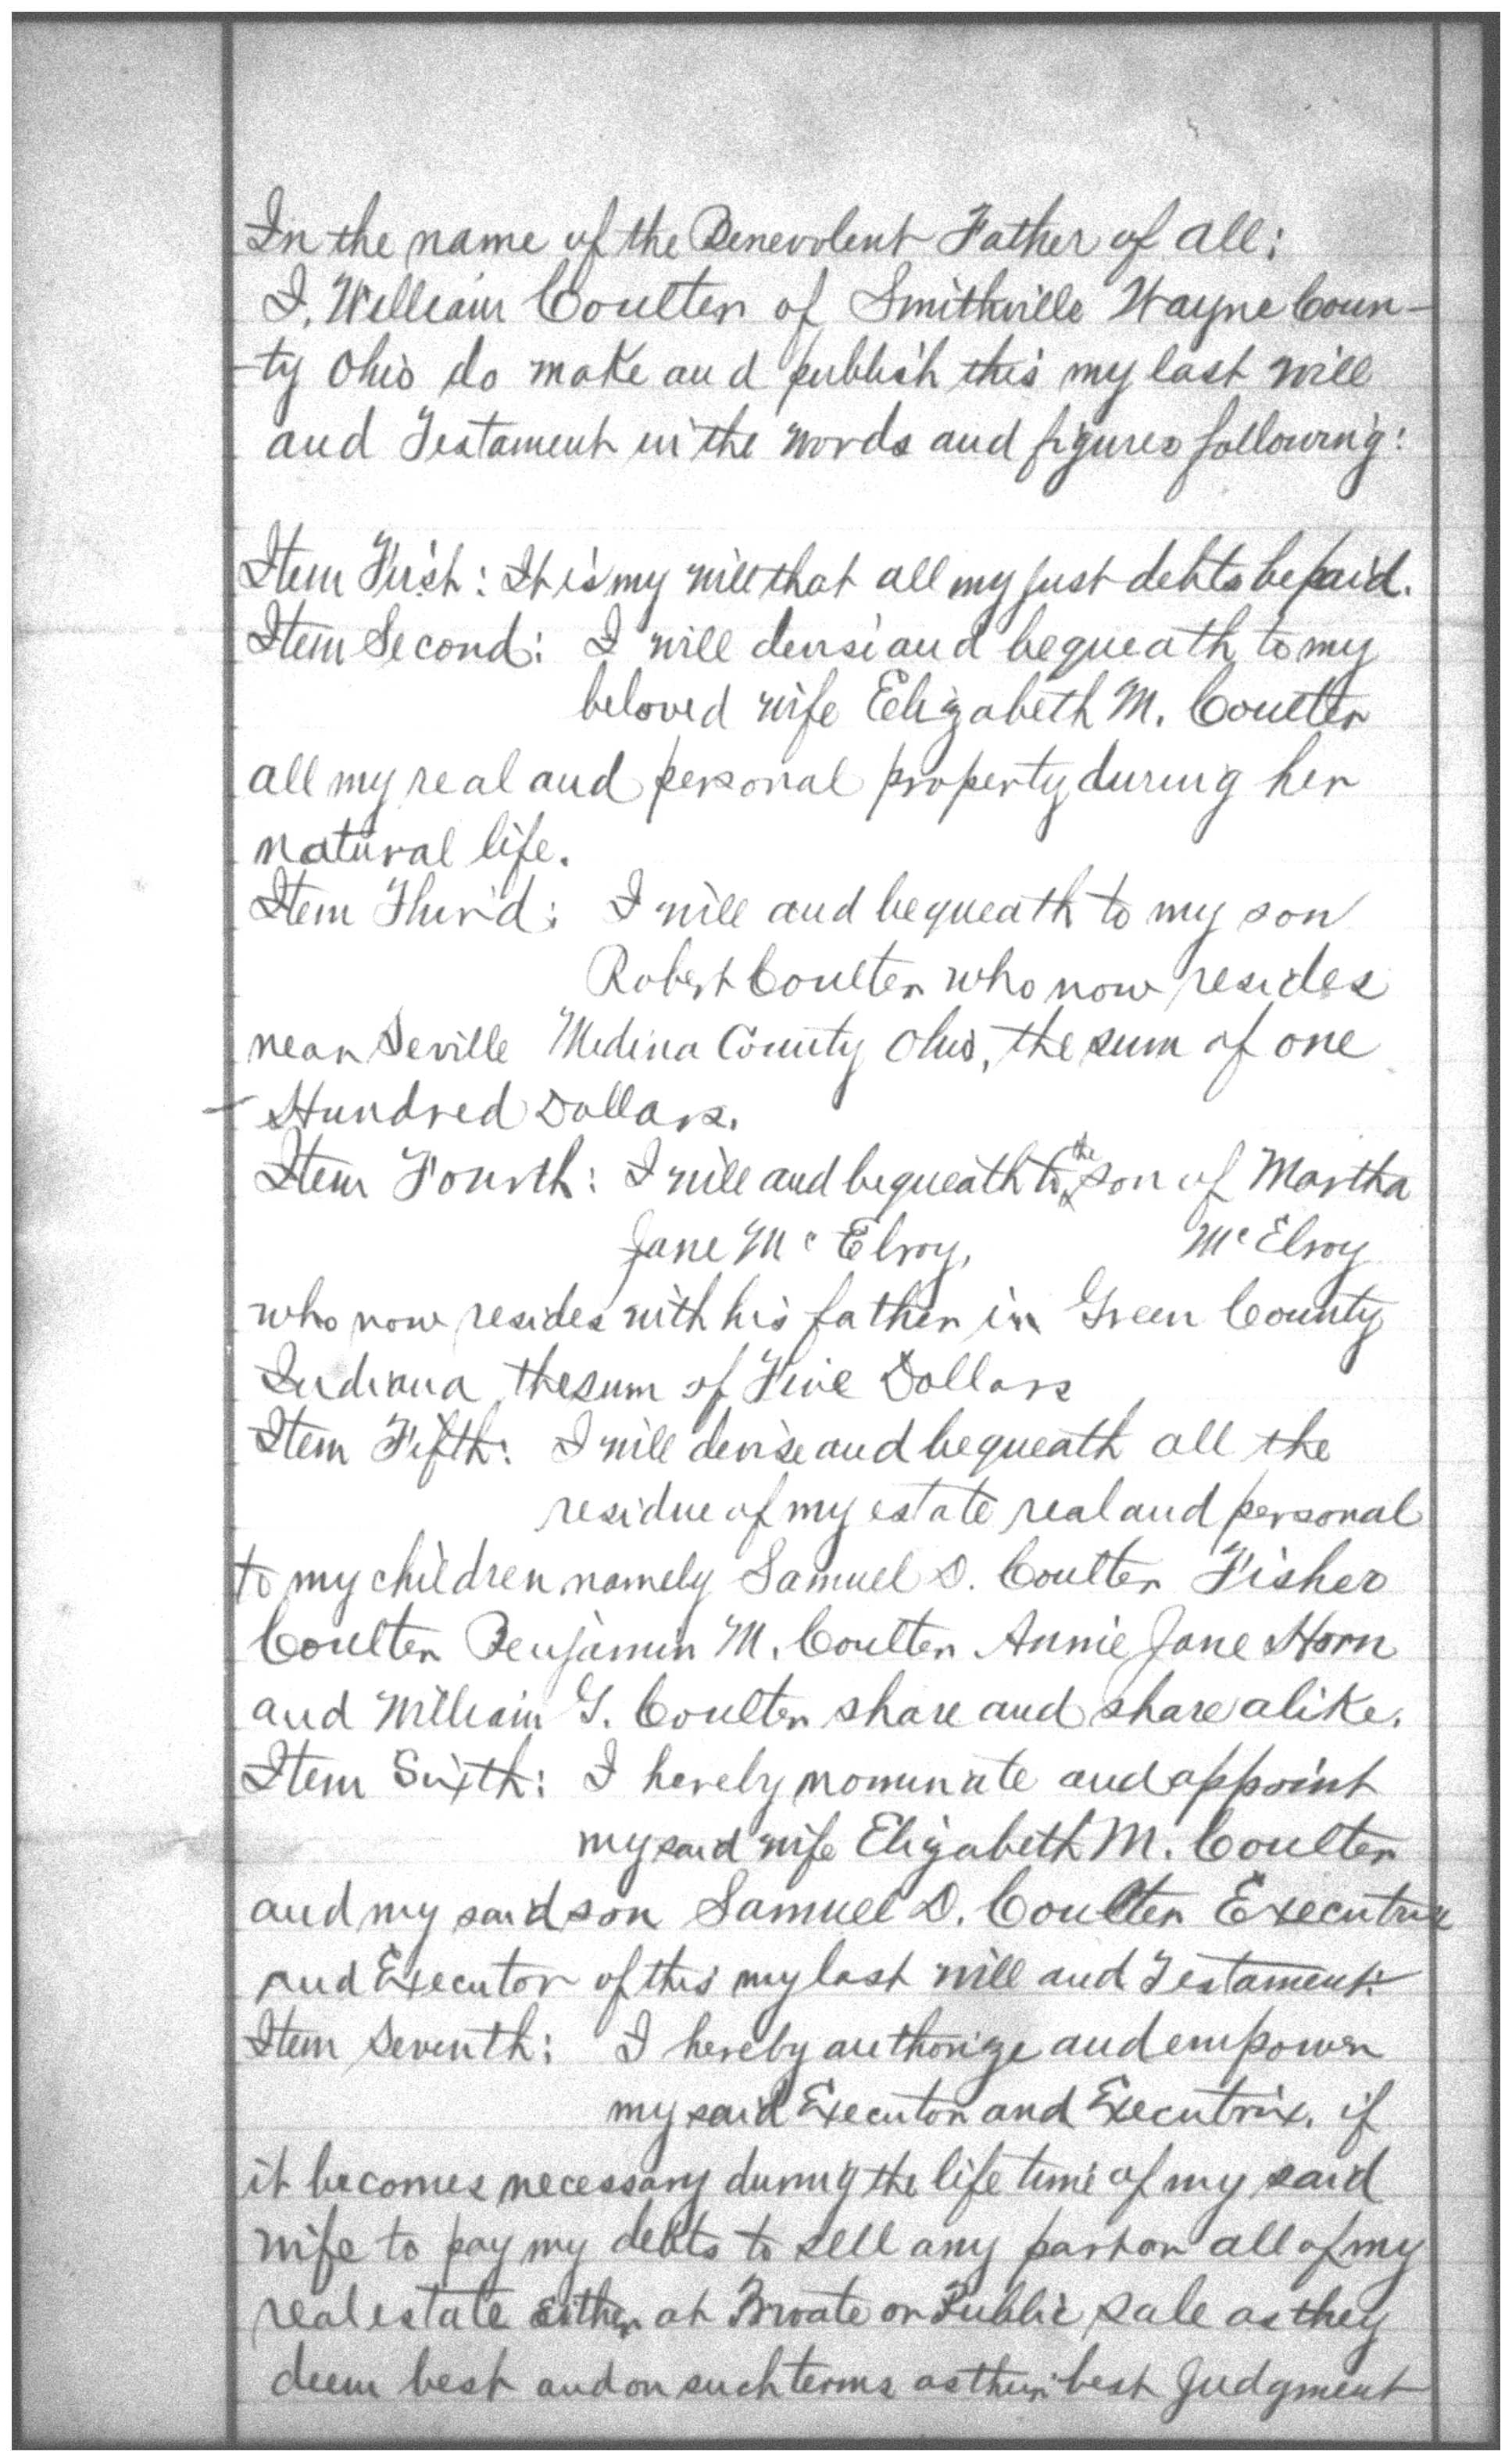 In the name of the Benevolent Father of all:
I, William Coulter of Smithville Wayne Coun-
-ty Ohio do make and publish this my last will
and Testament in the words and figures following:
Item First: It is my will that all my just debts be paid.
Item Second: I will devise and bequeath to my
beloved wife Elizabeth M. Coulter
all my real and personal property during her
natural life.
Item Third: I will and bequeath to my son
Robert Coulter who now resides
near Seville Medina County Ohio, the sum of one
Hundred Dollars.
Item Fourth: I will and bequeath to the son of Martha
Jane McElroy, McElroy
who now resides with his father in Green County
Indiana the sum of Five Dollars
Item Fifth: I will devise and bequeath all the
residue of my estate real and personal
to my children namely Samuel D. Coulter Fisher
Coulter Benjamin M. Coulter Annie Jane Horn
and William G. Coulter share and share alike.
Item Sixth: I hereby nominate and appoint
my said wife Elizabeth M. Coulter
and my said son Samuel D. Coulter Executrix
and Executor of this my last will and Testament:
Item Seventh: I hereby authorize and empower
my said Executor and Executrix, if
it becomes necessary during the life time of my said
wife to pay my debts to sell any part or all of my
real estate either at Private or Public sale as they
deem best and on such terms as their best Judgment